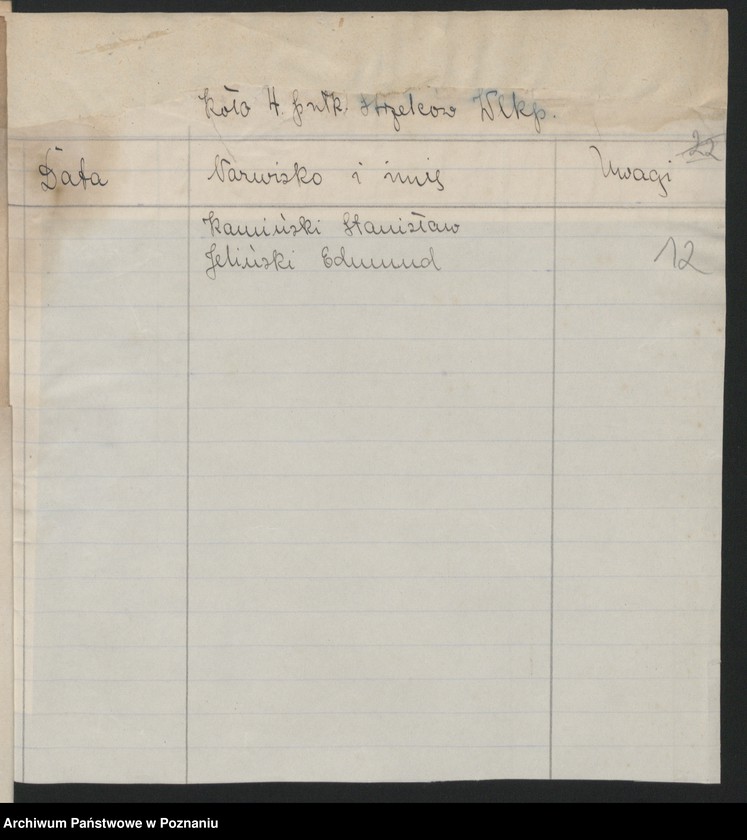 Koło 4. pułk. strzelców Wlkp.
22
Data Nazwisko i imię Uwagi
Kamiński Stanisław
Jeliński Edmund
12
Archiwum Państwowe w Poznaniu